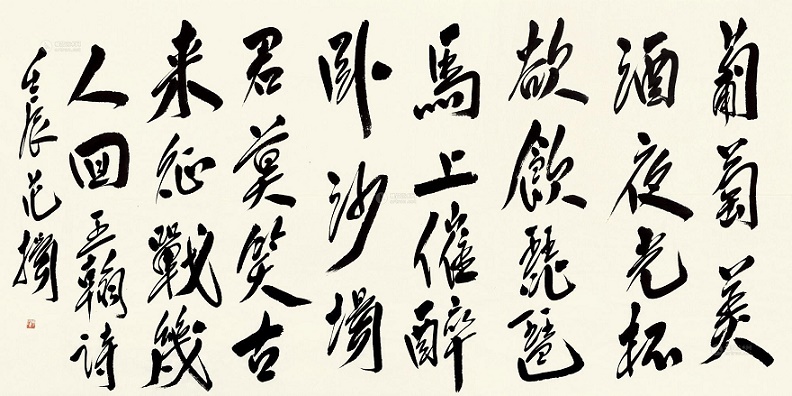 葡萄美
酒夜光杯
欲飲琵琶
馬上催醉
卧沙場
君莫笑古
来征戰幾
人回王翰诗
壬辰范